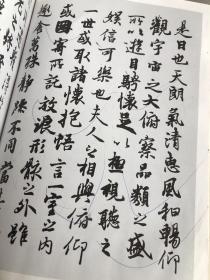 是日也天朗氣清惠風和暢仰
觀宇宙之大俯察品類之盛
所以遊目騁懷足以極視聽之
娛信可樂也夫人之相與俯仰
一世或取諸懷抱悟言一室之內
或因寄所託放浪形骸之外雖
趣舍萬殊靜躁不同當